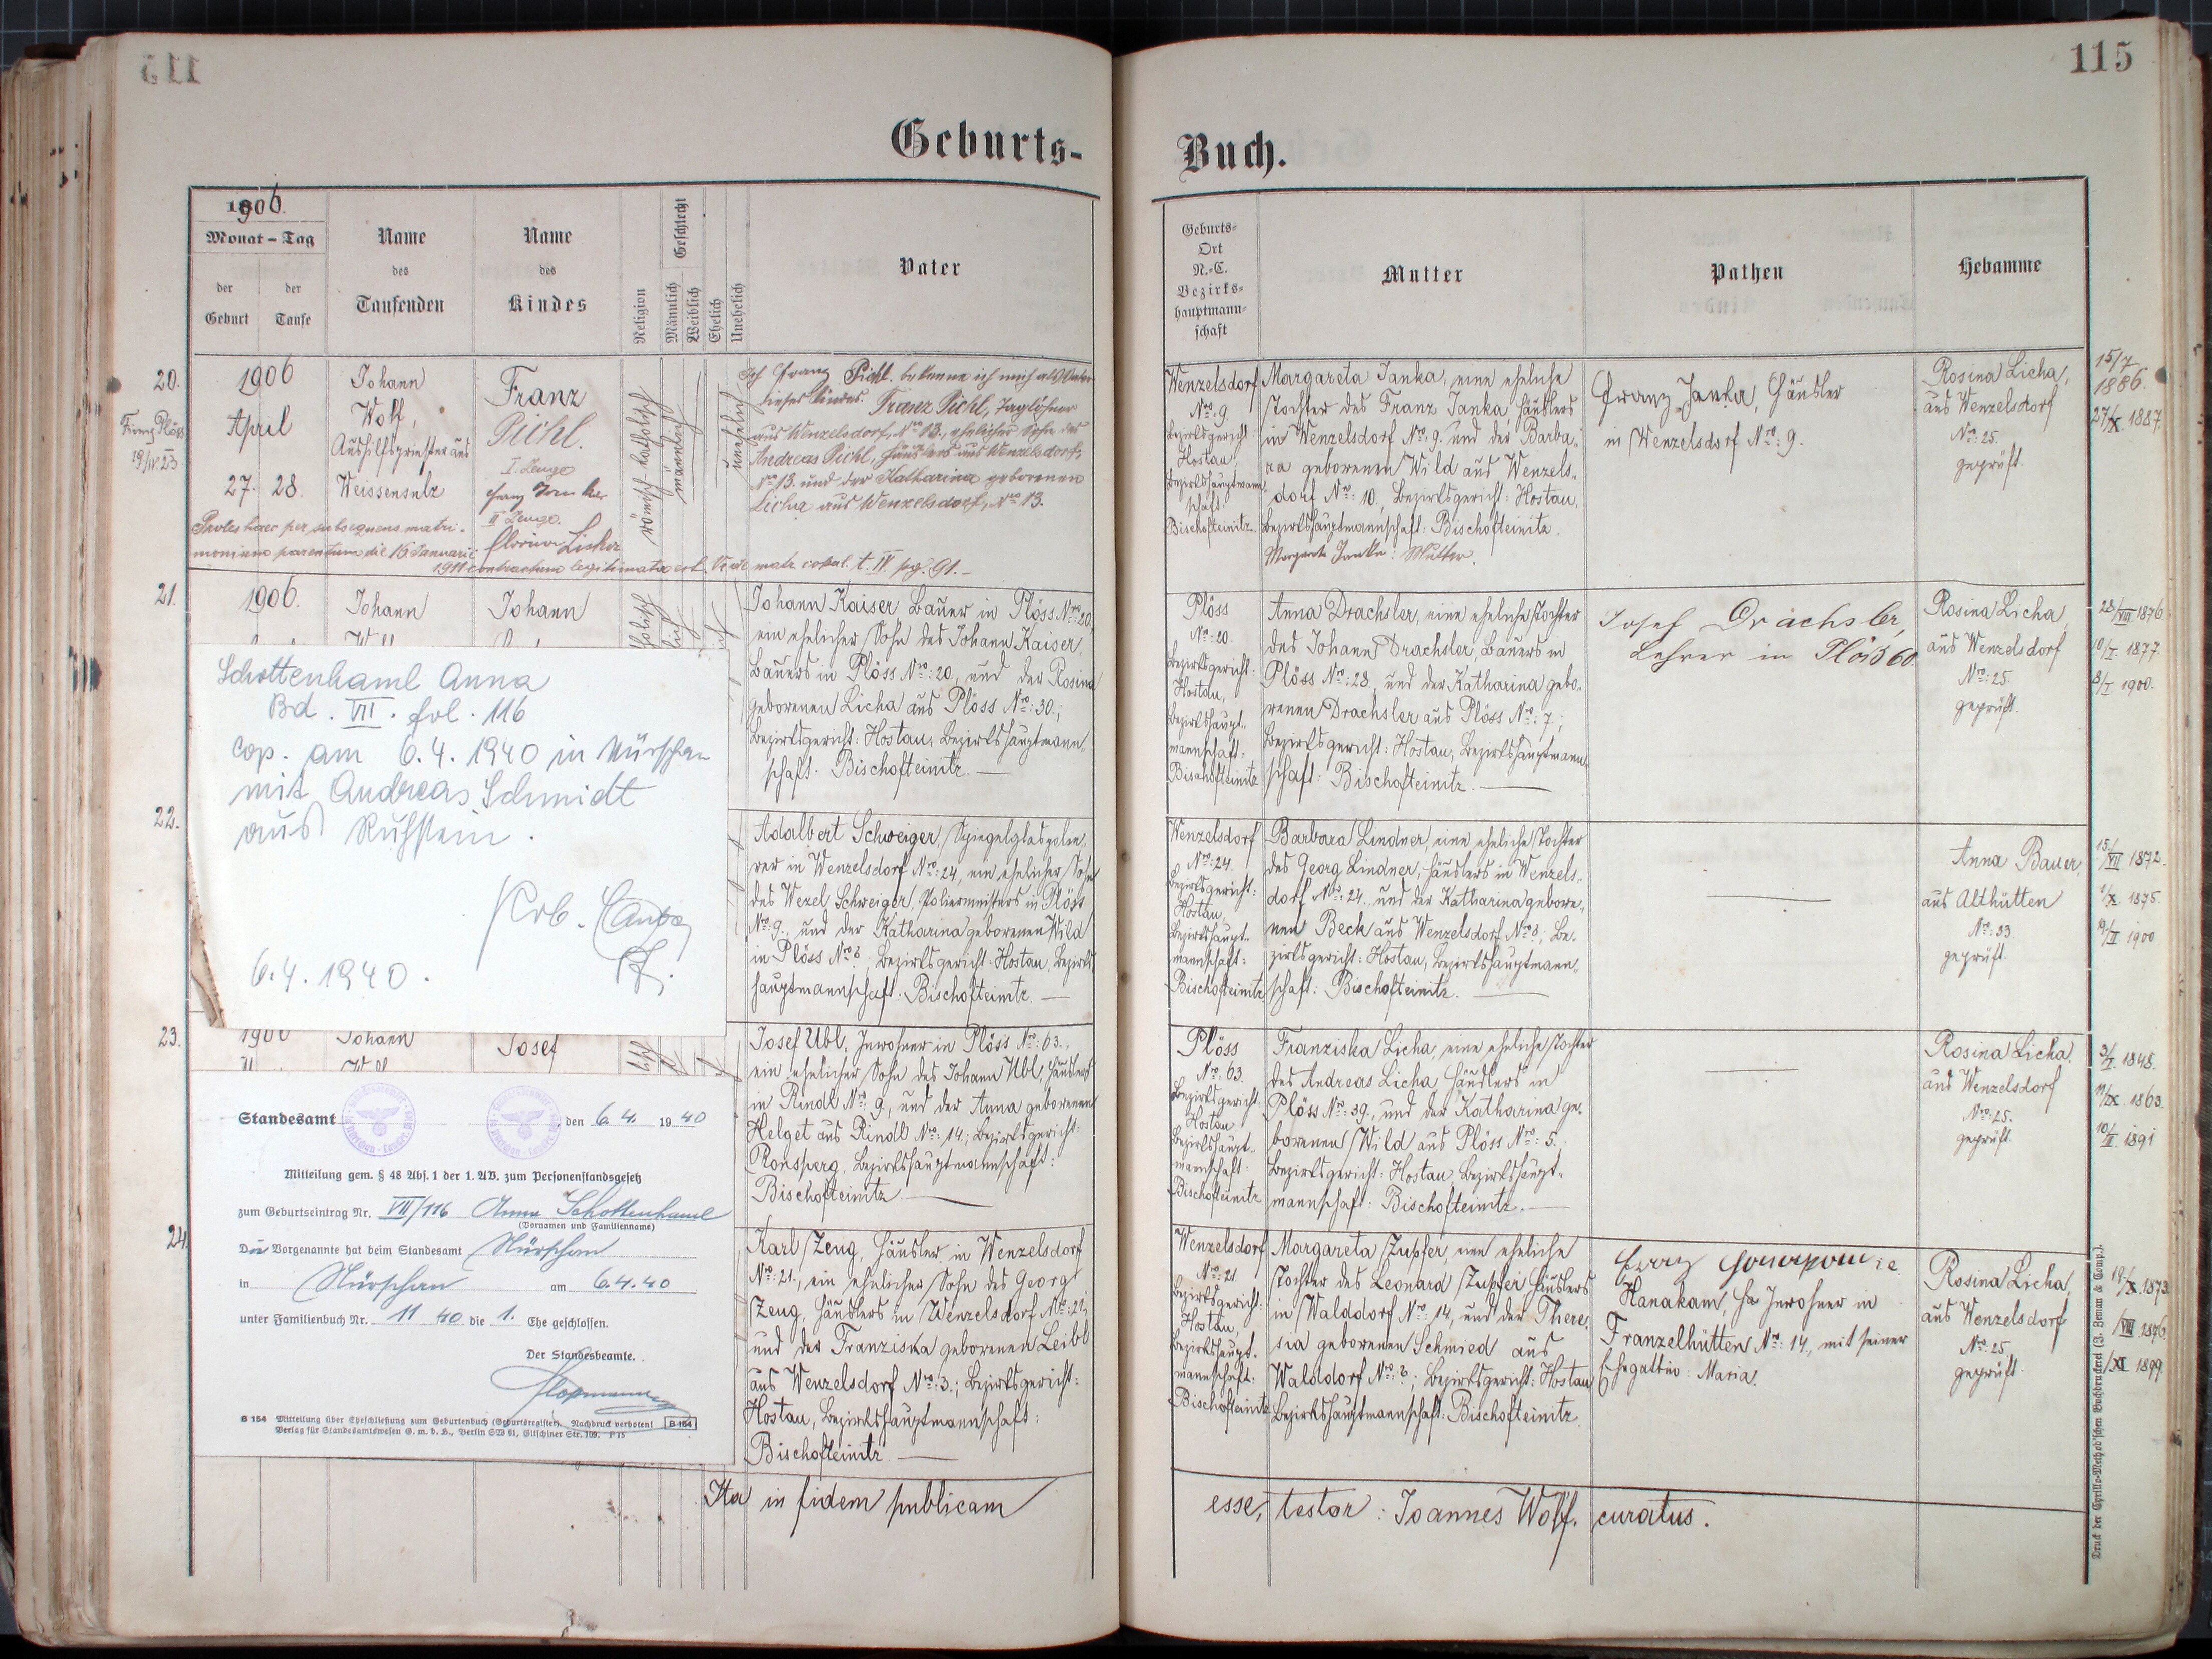 115
Geburts-
1906.
Monat - Tag
der Geburt
der Taufe
Name
des
Taufenden
Name
des
Kindes
Religion
Männlich
Weiblich
Geschlecht
Ehelich
Unehelich
Vater
20.
Firmg Plöss
19/IV. 23
1906
April
27. 28.
Johann
Wolf,
Aushilfspriester aus
Weissensulz
Franz
Pichl.
I. Zeuge
Franz Janka
II Zeuge.
Florian Licha
römisch katholisch
männlich
unehelich
Ich Franz Pichl bekenne ich mich als Vater
dieses Kindes. Franz Pichl, Taglöhner
aus Wenzelsdorf, Nro 13., ehelicher Sohn des
Andreas Pichl, Häuslers aus Wenzelsdorf,
Nro 13. und der Katharina geborenen
Licha aus Wenzelsdorf, Nro 13.
Proles haec per subsequens matri-
monium parentum die 16 Januarii
1911 contractum legitimata est. Vide matr. copul. t. IV pag. 91.-
21.
1906.
Johann
Johann
Johann Kaiser, Bauer in Plöss Nro: 20,
ein ehelicher Sohn des Johann Kaiser,
Bauers in Plöss Nro: 20, und der Rosina
geborenen Licha aus Plöss Nro: 30.;
Bezirksgericht: Hostau, Bezirkshauptmann-
schaft: Bischofteinitz.
Schottenhaml Anna
Bd. VII. fol. 116
cop. am 6.4.1940 in Nürschan
mit Andreas Schmidt
aus Ruhstein.
6.4.1940.
22.
Adalbert Schweiger, Spiegelglaspolie-
rer in Wenzelsdorf Nro: 24, ein ehelicher Sohn
des Wezel Schweiger, Poliermeisters in Plöss
Nro: 9., und der Katharina geborenen Wild
in Plöss Nro ?, Bezirksgericht: Hostau, Bezirks-
hauptmannschaft: Bischofteinitz.
23.
1906
Johann
Josef
Josef Ubl, Inwohner in Plöss Nro: 63.,
ein ehelicher Sohn des Johann Ubl, Häuslers
in Rindl Nro: 9., und der Anna geborenen
Helget aus Rindl Nro: 14.; Bezirksgericht:
Ronsperg, Bezirkshauptmannschaft:
Bischofteinitz.
Standesamt
, den 6.4. 1940
Mitteilung gem. § 48 Abs. 1 der 1. AV. zum Personenstandsgesetz
zum Geburtseintrag Nr. VII/116 Anna Schottenhaml
(Vornamen und Familienname)
Die Vorgenannte hat beim Standesamt Nürschan
in Nürschan am 6.4.40
unter Familienbuch Nr. 11 40 die 1. Ehe geschlossen.
Der Standesbeamte.
B 154 Mitteilung über Eheschließung zum Geburtenbuch (Geburtsregister). Nachdruck verboten! B 154
Verlag für Standesamtswesen G. m. b. H., Berlin SW 61, Gitschiner Str. 109. F 15
24.
Karl Zeug, Häusler in Wenzelsdorf
Nro: 21., ein ehelicher Sohn des Georg
Zeug, Häuslers in Wenzelsdorf Nro: 21,
und der Franziska geborenen Leibl
aus Wenzelsdorf Nro: 3.; Bezirksgericht:
Hostau, Bezirkshauptmannschaft:
Bischofteinitz.
Ita in fidem publicam
115
Buch.
Geburts-
Ort
N.-C.
Bezirks-
hauptmann-
schaft
Mutter
Pathen
Hebamme
Wenzelsdorf
Nro: 9.
Bezirksgericht:
Hostau,
Bezirkshauptmann-
schaft:
Bischofteinitz.
Margareta Janka, eine eheliche
Tochter des Franz Janka, Häuslers
in Wenzelsdorf Nro: 9. und der Barba-
ra geborenen Wild aus Wenzels-
dorf Nro: 10, Bezirksgericht: Hostau,
Bezirkshauptmannschaft: Bischofteinitz.
Margareta Janka: Mutter.
Franz Janka, Häusler
in Wenzelsdorf Nro: 9.
Rosina Licha,
aus Wenzelsdorf
Nro: 25.
geprüft.
15/7
1886.
27/X. 1887.
Plöss
Nro: 20.
Bezirksgericht:
Hostau,
Bezirkshaupt-
mannschaft:
Bischofteinitz
Anna Drachsler, eine eheliche Tochter
des Johann Drachsler, Bauers in
Plöss Nro: 28., und der Katharina gebo-
renen Drachsler aus Plöss Nro: 7.;
Bezirksgericht: Hostau, Bezirkshauptmann-
schaft: Bischofteinitz.
Josef Drachsler,
Lehrer in Plöß 60.
Rosina Licha
aus Wenzelsdorf
Nro: 25.
geprüft.
28/VIII. 1876.
10/I. 1877.
8/I 1900.
Wenzelsdorf
Nro: 24.
Bezirksgericht:
Hostau,
Bezirkshaupt-
mannschaft:
Bischofteinitz
Barbara Lindner, eine eheliche Tochter
des Georg Lindner, Häuslers in Wenzels-
dorf Nro: 24., und der Katharina gebore-
nen Beck aus Wenzelsdorf Nro ?; Be-
zirksgericht: Hostau, Bezirkshauptmann-
schaft: Bischofteinitz.
Anna Bauer,
aus Althütten
Nro: 33
geprüft.
15/VII 1872.
1/X. 1875.
19/II. 1900
Plöss
Nro. 63.
Bezirksgericht:
Hostau
Bezirkshaupt-
mannschaft:
Bischofteinitz
Franziska Licha, eine eheliche Tochter
des Andreas Licha, Häuslers in
Plöss Nro: 39., und der Katharina ge-
borenen Wild aus Plöss Nro: 5.
Bezirksgericht: Hostau, Bezirkshaupt-
mannschaft: Bischofteinitz.
Rosina Licha,
aus Wenzelsdorf
Nro: 25.
geprüft.
3/I. 1848.
11/IX. 1863.
10/II. 1891
Wenzelsdorf
Nro: 21.
Bezirksgericht:
Hostau,
Bezirkshaupt-
mannschaft:
Bischofteinitz
Margareta Zupfer, eine eheliche
Tochter des Leonard Zupfer Häuslers
in Walddorf Nro: 14, und der There-
sia geborenen Schmied aus
Walddorf Nro ?; Bezirksgericht: Hostau
Bezirkshauptmannschaft: Bischofteinitz.
Hanakam, Inwohner in
Franzelhütten Nro: 14., mit seiner
Ehegattin: Maria.
Rosina Licha,
aus Wenzelsdorf
Nro: 25
geprüft.
19./X. 1873.
/VIII 1876.
/XI 1899.
esse, testor: Joannes Wolf, curatus.
Druck der Cyrillo-Method'schen Buchdruckerei (J. Zeman & Comp.).